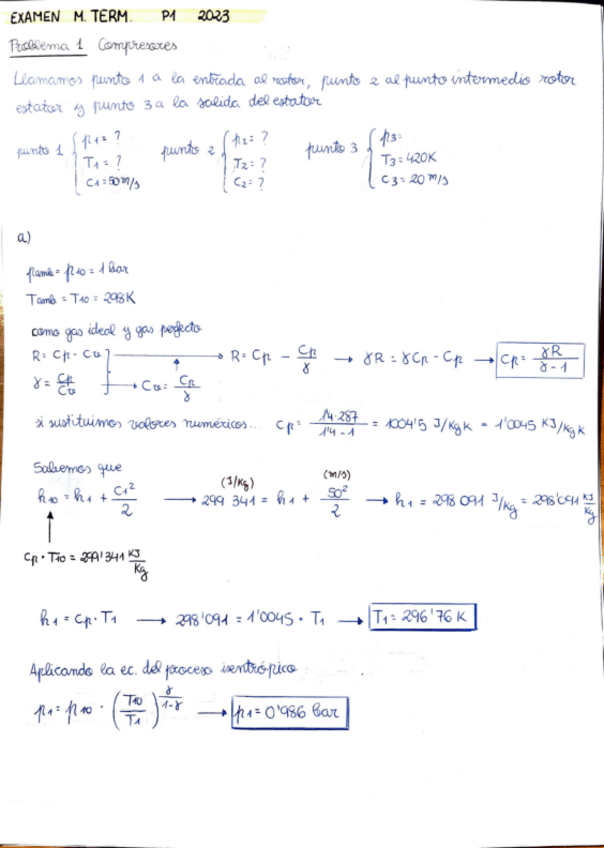 EXAMEN M. TERM. P1 2023
Problema 1 Compresores
Llamamos punto 1 a la entrada al rotor, punto 2 al punto intermedio rotor
estator y punto 3 a la salida del estator
punto 1 { p1 = ? T1 = ? C1 = 50 m/s punto 2 { p2 = ? T2 = ? C2 = ? punto 3 { p3: T3 = 420K C3 = 20 m/s
a)
pamb = p10 = 1 bar
Tamb = T10 = 298K
como gas ideal y gas perfecto
R = Cp - Cv → R = Cp - Cp/γ → γR = γCp - Cp → Cp = γR/(γ-1)
γ = Cp/Cv → Cv = Cp/γ
si sustituimos valores numéricos... Cp = 1'4·287/(1'4-1) = 1004'5 J/kg K = 1'0045 KJ/kg K
Sabemos que
(J/kg) (m/s)
h10 = h1 + C1²/2 → 299 341 = h1 + 50²/2 → h1 = 298 091 J/kg = 298'091 KJ/kg
Cp · T10 = 299'341 KJ/kg
h1 = Cp · T1 → 298'091 = 1'0045 · T1 → T1 = 296'76 K
Aplicando la ec. del proceso isentrópico
p1 = p10 · (T10/T1)^(γ/(1-γ)) → p1 = 0'986 bar